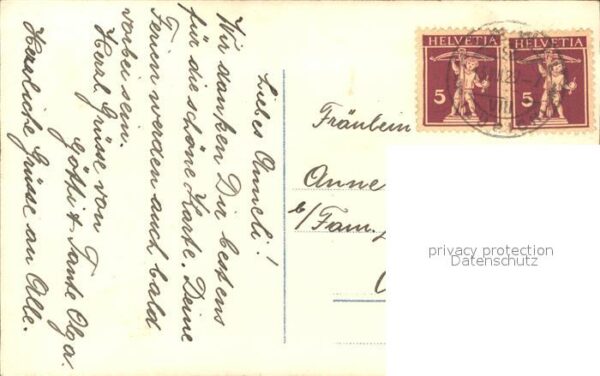 Liebes Anneli!
Wir danken Dir bestens
für die schöne Karte. Deine
Ferien werden auch bald
vorbei sein.
Herzl. Grüsse von
Götti & Tante Olga.
Herzliche Grüsse an Alle.
HELVETIA HELVETIA
5 5
Fräulein
Anne
b/Fam.
privacy protection
Datenschutz